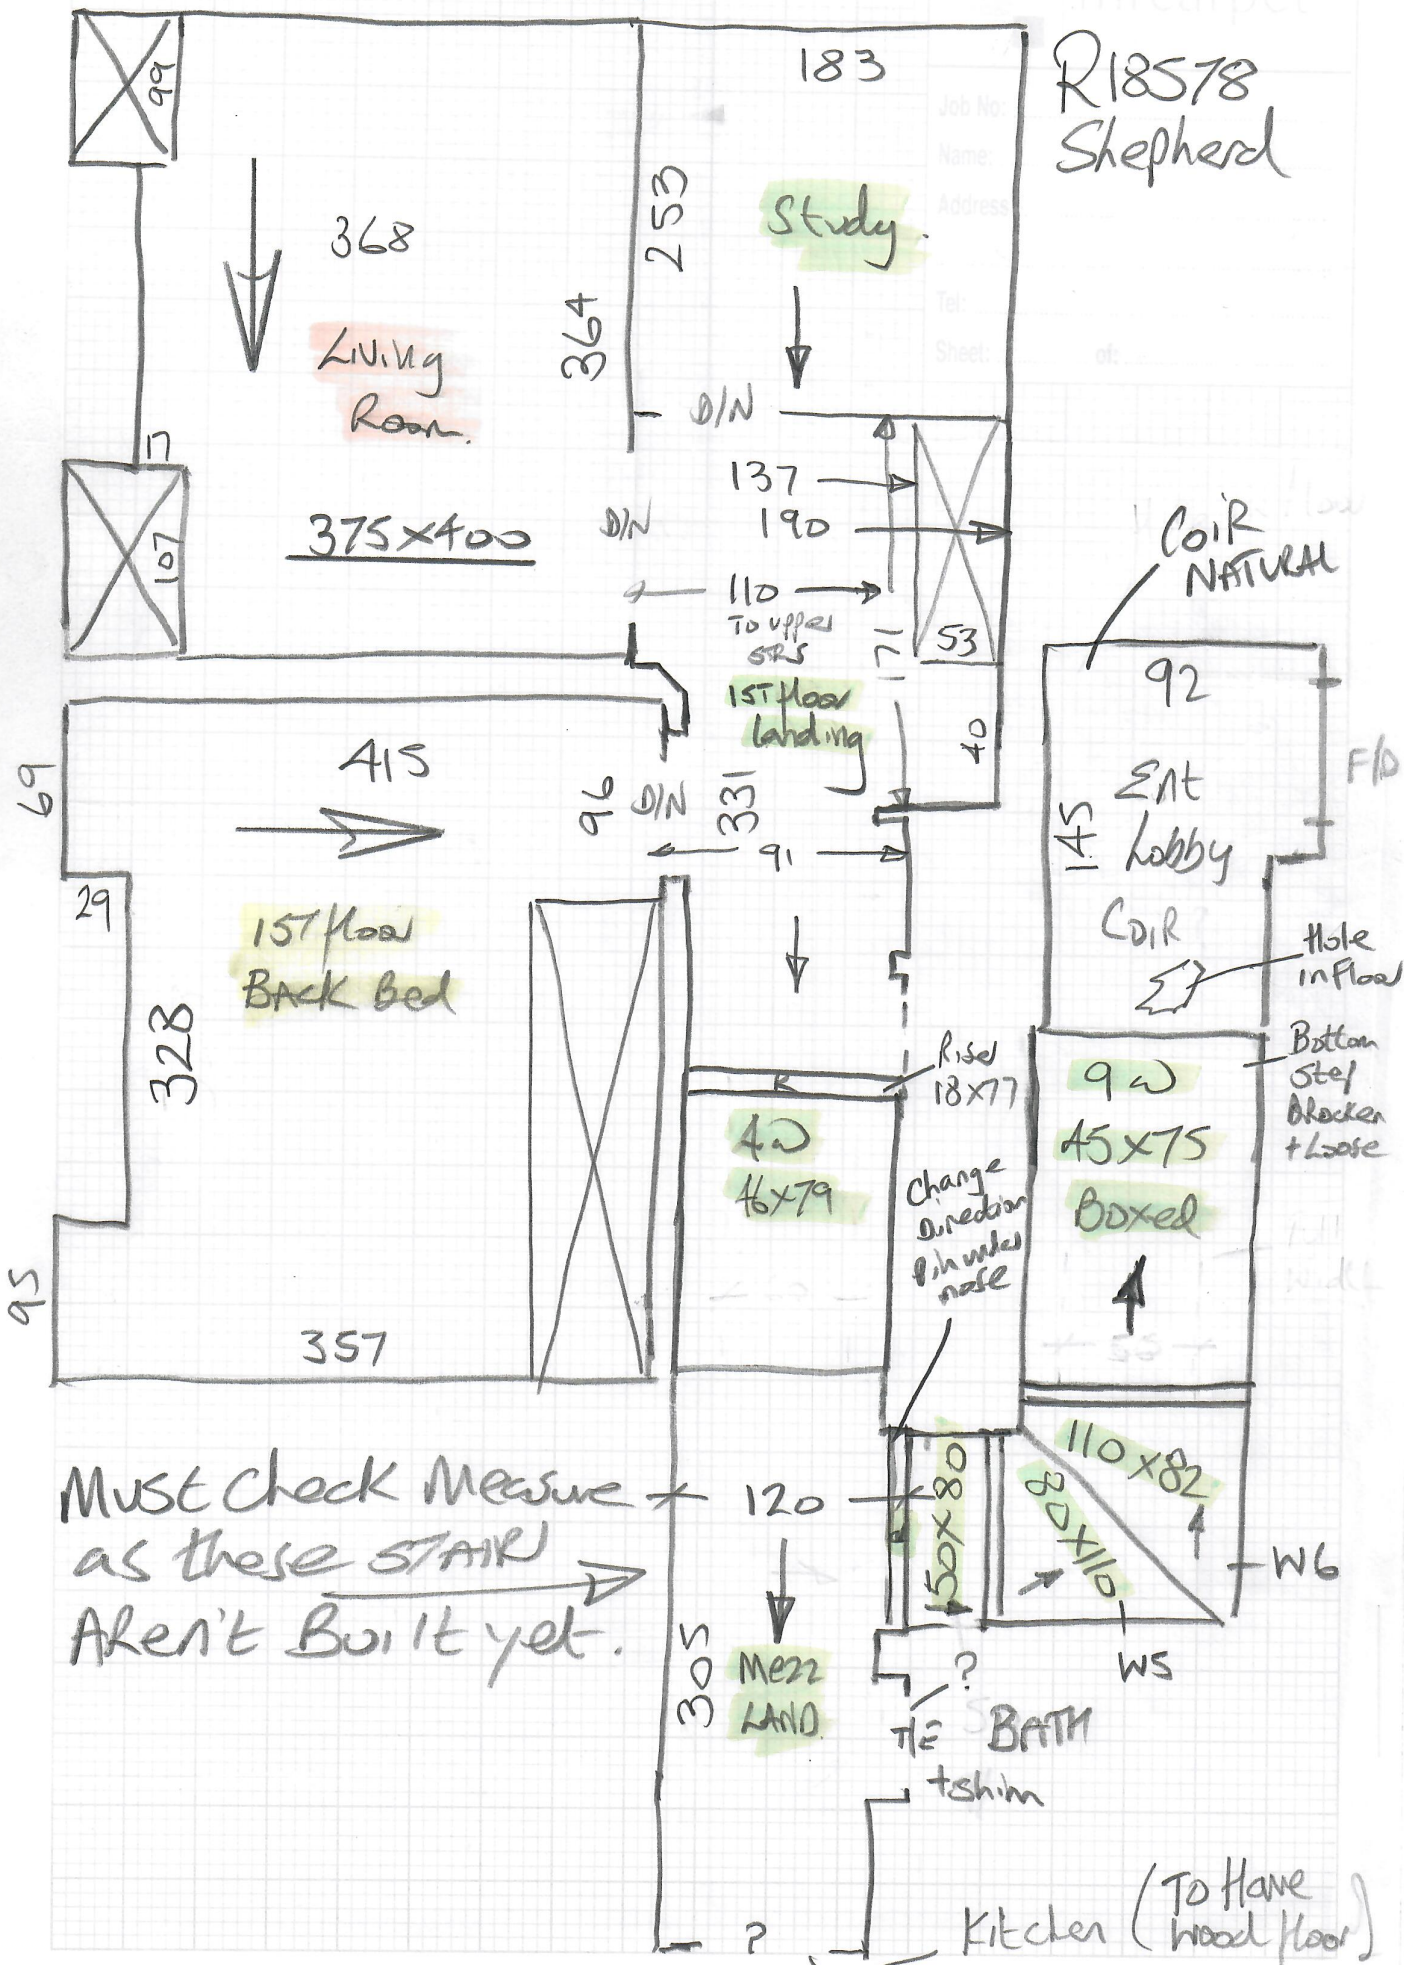 R18578
Shepherd
Job No:
Name:
Address
Tel:
Sheet: of:
99
183
253
Study.
368
364
Living
Room.
D/N
17
107
375x400
D/N
137
190
110
To upper
STRS
171
53
1ST floor
landing
40
COIR
NATURAL
92
Ent
Lobby
145
COIR
F/D
Hole
in Floor
69
415
96
D/N
331
91
29
1ST floor
BACK Bed
328
95
357
Riser
18x77
R
4W
46x79
Change
Direction
Pin under
nose
9W
45x75
Boxed
Bottom
Step
Brocken
+ Loose
Must Check Measure
as these STAIR
Aren't Built yet.
120
50x80
80x110
110x82
W6
W5
305
Mezz
LAND.
?
T/E BATH
+shim
?
Kitchen (To Have
wood floor)